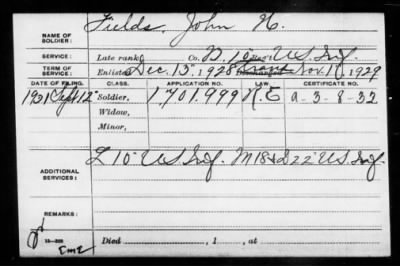 NAME OF SOLDIER: Fields, John H.
SERVICE: Late rank, Co. D, 10 Reg't U.S. Inf.
TERM OF SERVICE: Enlisted Dec. 13, 1928 Discharged Nov. 10, 1929
DATE OF FILING. CLASS. APPLICATION NO. LAW. CERTIFICATE NO.
1931 Sept 12 Soldier, 1701,999 R.E a-3-8-32
Widow,
Minor,
ADDITIONAL SERVICES: L 10" U.S. Inf. M 18 & D 22" U.S. Inf.
REMARKS:
Died , 1 , at
EmE